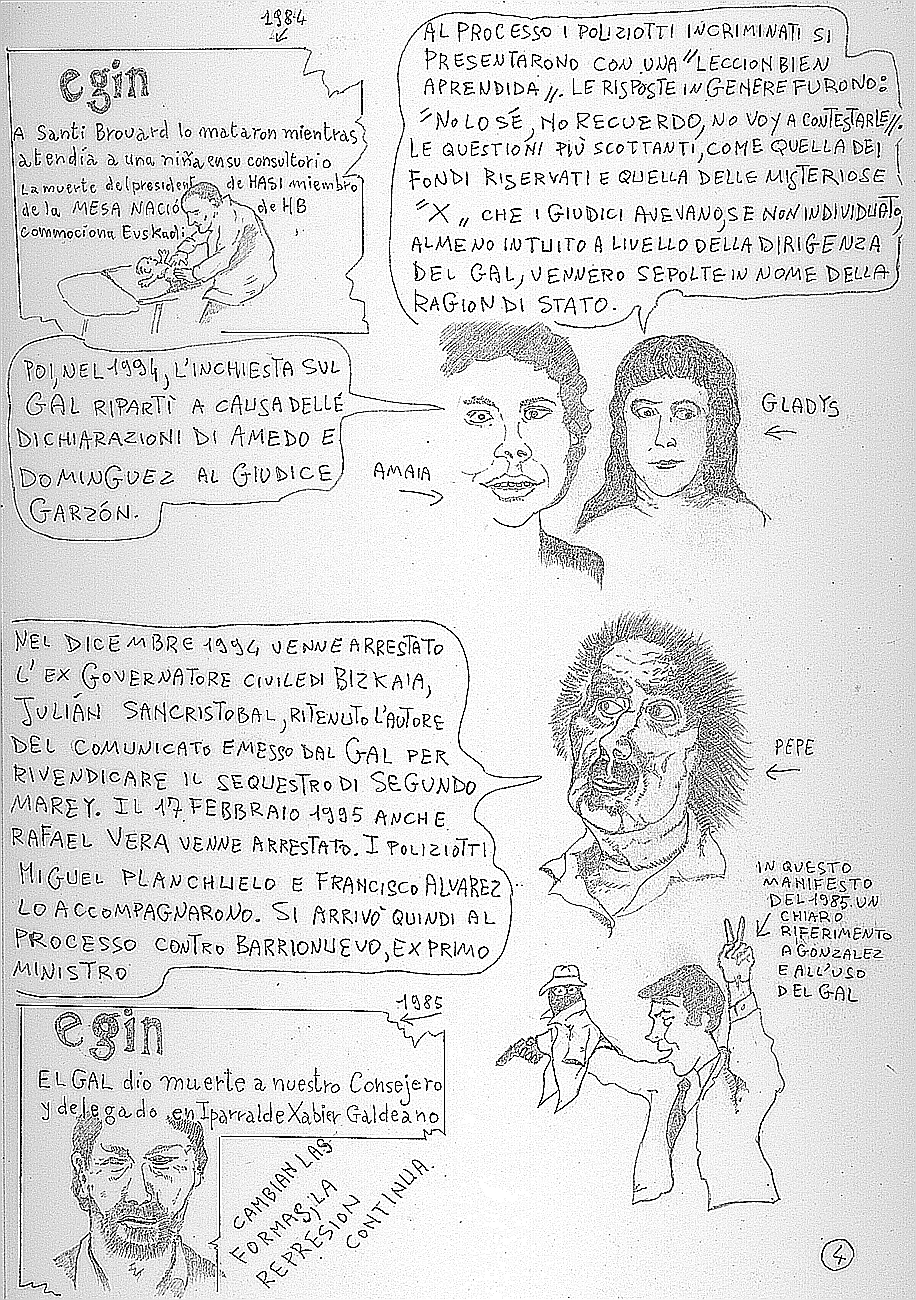 1984
egin
A Santi Brouard lo mataron mientras
atendía a una niña en su consultorio
La muerte del president de HASI miembro
de la MESA NACIÓ de HB
commociona Euskadi
AL PROCESSO I POLIZIOTTI INCRIMINATI SI
PRESENTARONO CON UNA "LECCION BIEN
APRENDIDA". LE RISPOSTE IN GENERE FURONO:
"NO LO SÉ, NO RECUERDO, NO VOY A CONTESTARLE".
LE QUESTIONI PIÙ SCOTTANTI, COME QUELLA DEI
FONDI RISERVATI E QUELLA DELLE MISTERIOSE
"X" CHE I GIUDICI AVEVANO, SE NON INDIVIDUATO,
ALMENO INTUITO A LIVELLO DELLA DIRIGENZA
DEL GAL, VENNERO SEPOLTE IN NOME DELLA
RAGION DI STATO.
POI, NEL 1994, L'INCHIESTA SUL
GAL RIPARTÌ A CAUSA DELLE
DICHIARAZIONI DI AMEDO E
DOMINGUEZ AL GIUDICE
GARZÓN.
AMAIA
GLADYS
NEL DICEMBRE 1994 VENNE ARRESTATO
L'EX GOVERNATORE CIVILE DI BIZKAIA,
JULIÁN SANCRISTOBAL, RITENUTO L'AUTORE
DEL COMUNICATO EMESSO DAL GAL PER
RIVENDICARE IL SEQUESTRO DI SEGUNDO
MAREY. IL 17 FEBBRAIO 1995 ANCHE
RAFAEL VERA VENNE ARRESTATO. I POLIZIOTTI
MIGUEL PLANCHUELO E FRANCISCO ALVAREZ
LO ACCOMPAGNARONO. SI ARRIVÒ QUINDI AL
PROCESSO CONTRO BARRIONUEVO, EX PRIMO
MINISTRO
PEPE
IN QUESTO
MANIFESTO
DEL 1985 UN
CHIARO
RIFERIMENTO
A GONZALEZ
E ALL'USO
DEL GAL
1985
egin
EL GAL dio muerte a nuestro Consejero
y delegado en Iparralde Xabier Galdeano
CAMBIAN LAS
FORMAS, LA
REPRESION
CONTINUA.
4